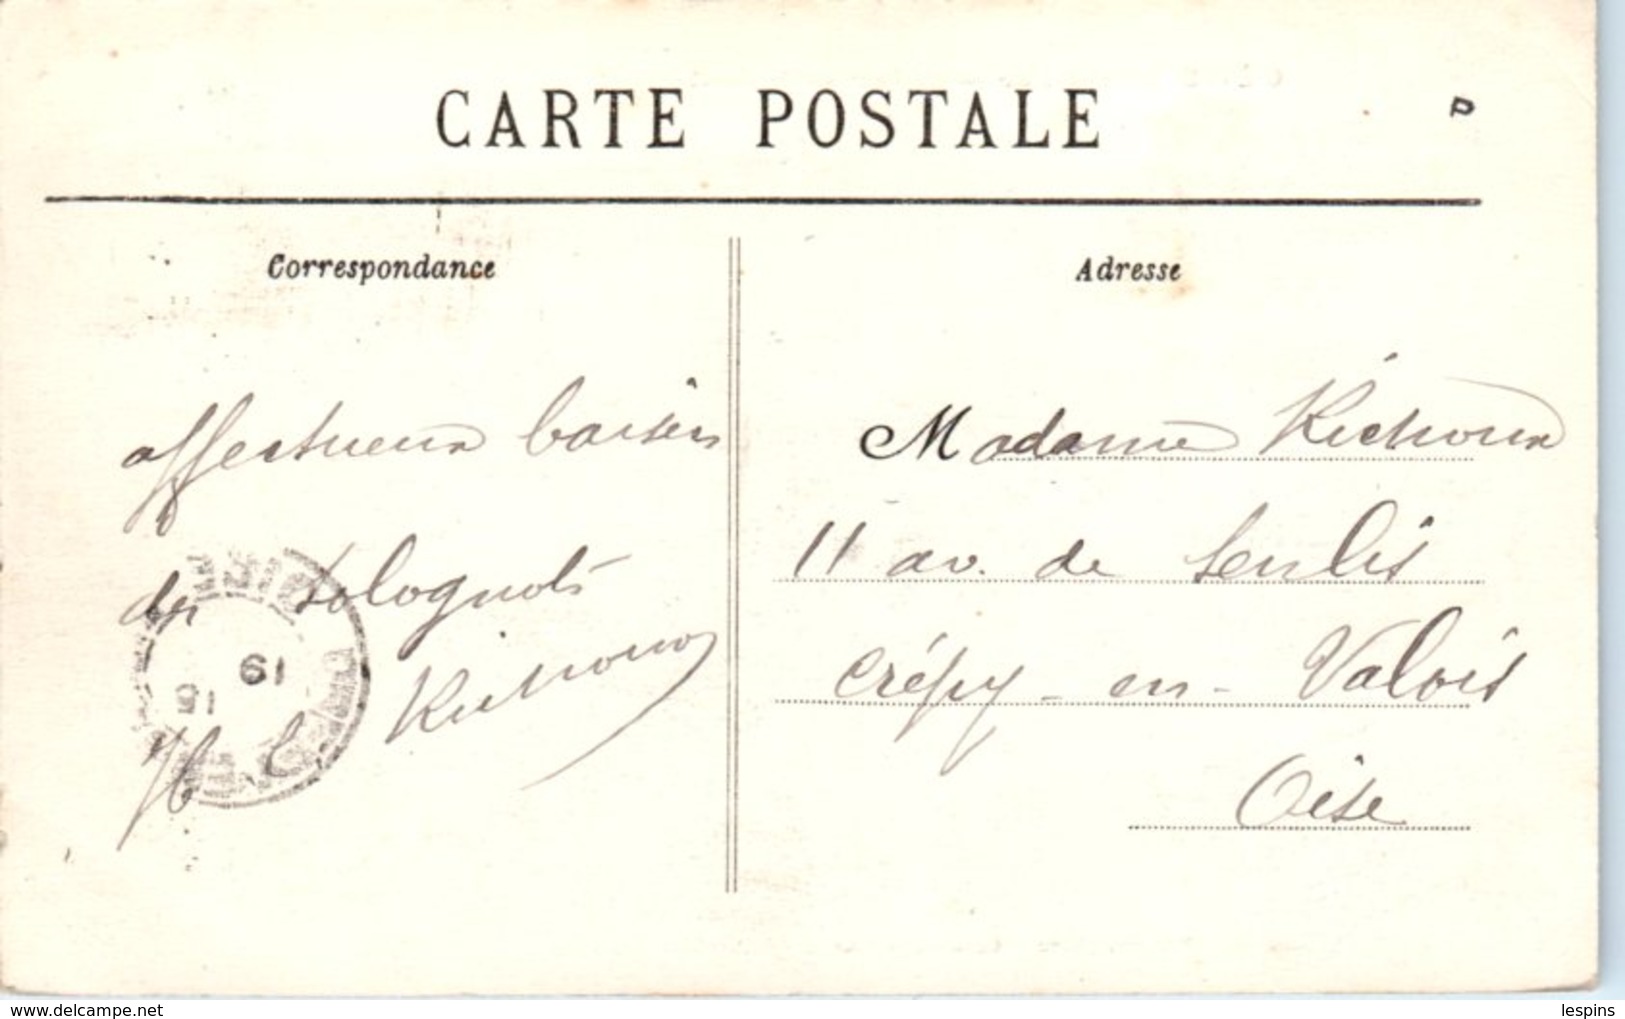 CARTE POSTALE
Correspondance
affectueux baisers
des Solognots
H C Kichoux
19
Adresse
Madame Kichoux
11 av. de Senlis
Crépy-en-Valois
Oise
www.delcampe.net
lespins